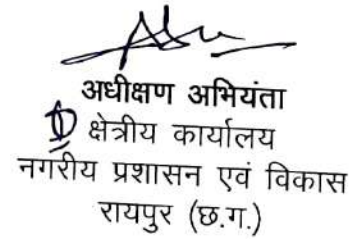 अधीक्षण अभियंता
क्षेत्रीय कार्यालय
नगरीय प्रशासन एवं विकास
रायपुर (छ.ग.)